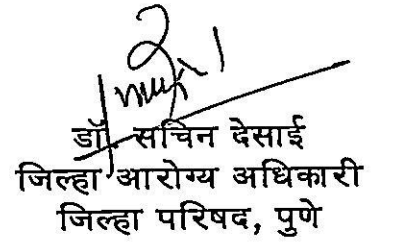 डॉ. सचिन देसाई
जिल्हा आरोग्य अधिकारी
जिल्हा परिषद, पुणे